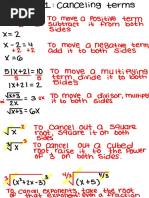 1: Canceling terms
To move a positive term
subtract it from both
sides
x=2
x-2=4
+2 +2
x=6
To move a negative term,
add it to both sides
5|x+2|=10
5 5
|x+2|=2
To move a multiplying
term, divide it to both
sides
To move a divisor, multiply
it to both sides
√x+3=6x
To cancel out a square
root, square it on both
sides
To cancel out a cubed
root, raise it to the power
of 3 on both sides.
To cancel exponents, take the root
of that exponent over a fraction